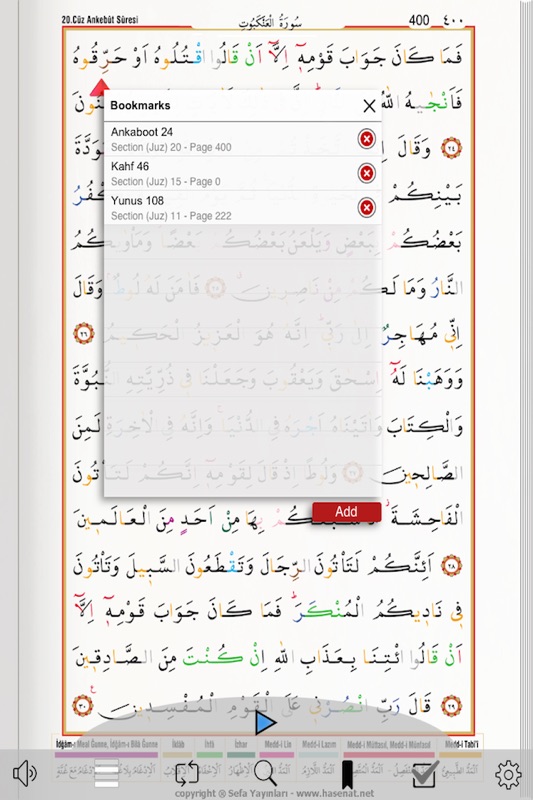 20.Cüz Ankebût Sûresi
سُورَةُ الْعَنْكَبُوتِ
400 ٤٠٠
فَمَا كَانَ جَوَابَ قَوْمِهٖٓ اِلَّٓا اَنْ قَالُوا اقْتُلُوهُ اَوْ حَرِّقُوهُ
فَاَنْجٰيهُ اللّٰهُ
Bookmarks
Ankaboot 24
Section (Juz) 20 - Page 400
٢٤ وَقَالَ
Kahf 46
Section (Juz) 15 - Page 0
بَيْنِكُمْ
Yunus 108
Section (Juz) 11 - Page 222
بَعْضُكُمْ بِبَعْضٍ وَيَلْعَنُ بَعْضُكُمْ بَعْضًا وَمَأْوٰيكُمُ
النَّارُ وَمَا لَكُمْ مِنْ نَاصِرٖينَ ٢٥ فَاٰمَنَ لَهُ لُوطٌ وَقَالَ
اِنّٖي مُهَاجِرٌ اِلٰى رَبّٖي اِنَّهُ هُوَ الْعَزٖيزُ الْحَكٖيمُ ٢٦
وَوَهَبْنَا لَهُٓ اِسْحٰقَ وَيَعْقُوبَ وَجَعَلْنَا فٖي ذُرِّيَّتِهِ النُّبُوَّةَ
وَالْكِتَابَ وَاٰتَيْنَاهُ اَجْرَهُ فِي الدُّنْيَا وَاِنَّهُ فِي الْاٰخِرَةِ لَمِنَ
الصَّالِحٖينَ ٢٧ وَلُوطًا اِذْ قَالَ لِقَوْمِهٖٓ اِنَّكُمْ لَتَأْتُونَ
Add
الْفَاحِشَةَ مَا سَبَقَكُمْ بِهَا مِنْ اَحَدٍ مِنَ الْعَالَمٖينَ
٢٨ اَئِنَّكُمْ لَتَأْتُونَ الرِّجَالَ وَتَقْطَعُونَ السَّبٖيلَ وَتَأْتُونَ
فٖي نَادٖيكُمُ الْمُنْكَرَ فَمَا كَانَ جَوَابَ قَوْمِهٖٓ اِلَّٓا
اَنْ قَالُوا ائْتِنَا بِعَذَابِ اللّٰهِ اِنْ كُنْتَ مِنَ الصَّادِقٖينَ
٢٩ قَالَ رَبِّ انْصُرْنٖي عَلَى الْقَوْمِ الْمُفْسِدٖينَ ٣٠
İdğâm-ı Meal Ğunne, İdğâm-ı Bilâ Ğunne İklâb İhfâ İzhar Medd-i Lîn Medd-i Lazım Medd-i Müttasıl, Medd-i Münfasıl Medd-i Tabi'î
copyright @ Sefa Yayınları - www.hasenat.net